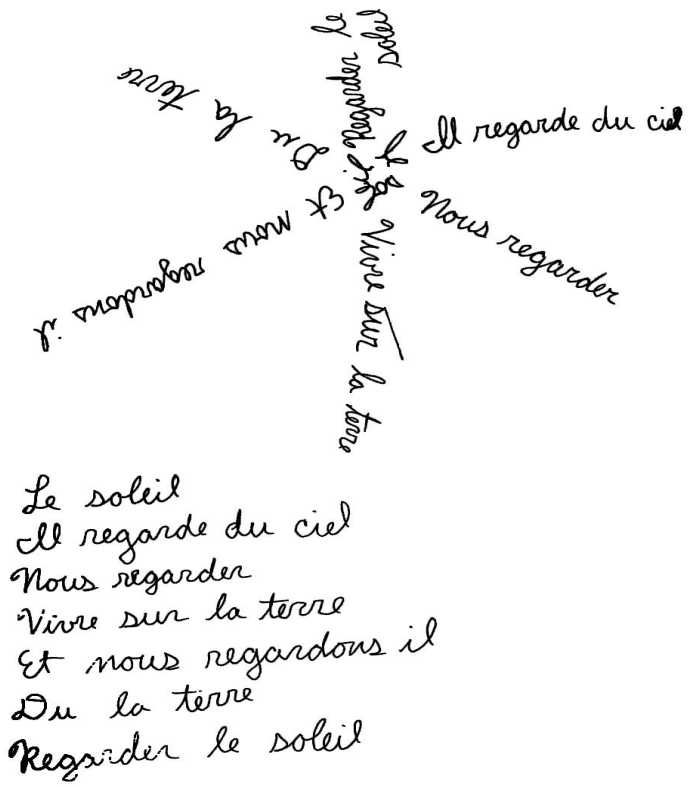 Le soleil
Il regarde du ciel
Nous regarder
Vivre sur la terre
Et nous regardons il
Du la terre
Regarder le soleil
Le soleil
Il regarde du ciel
Nous regarder
Vivre sur la terre
Et nous regardons il
Du la terre
Regarder le soleil